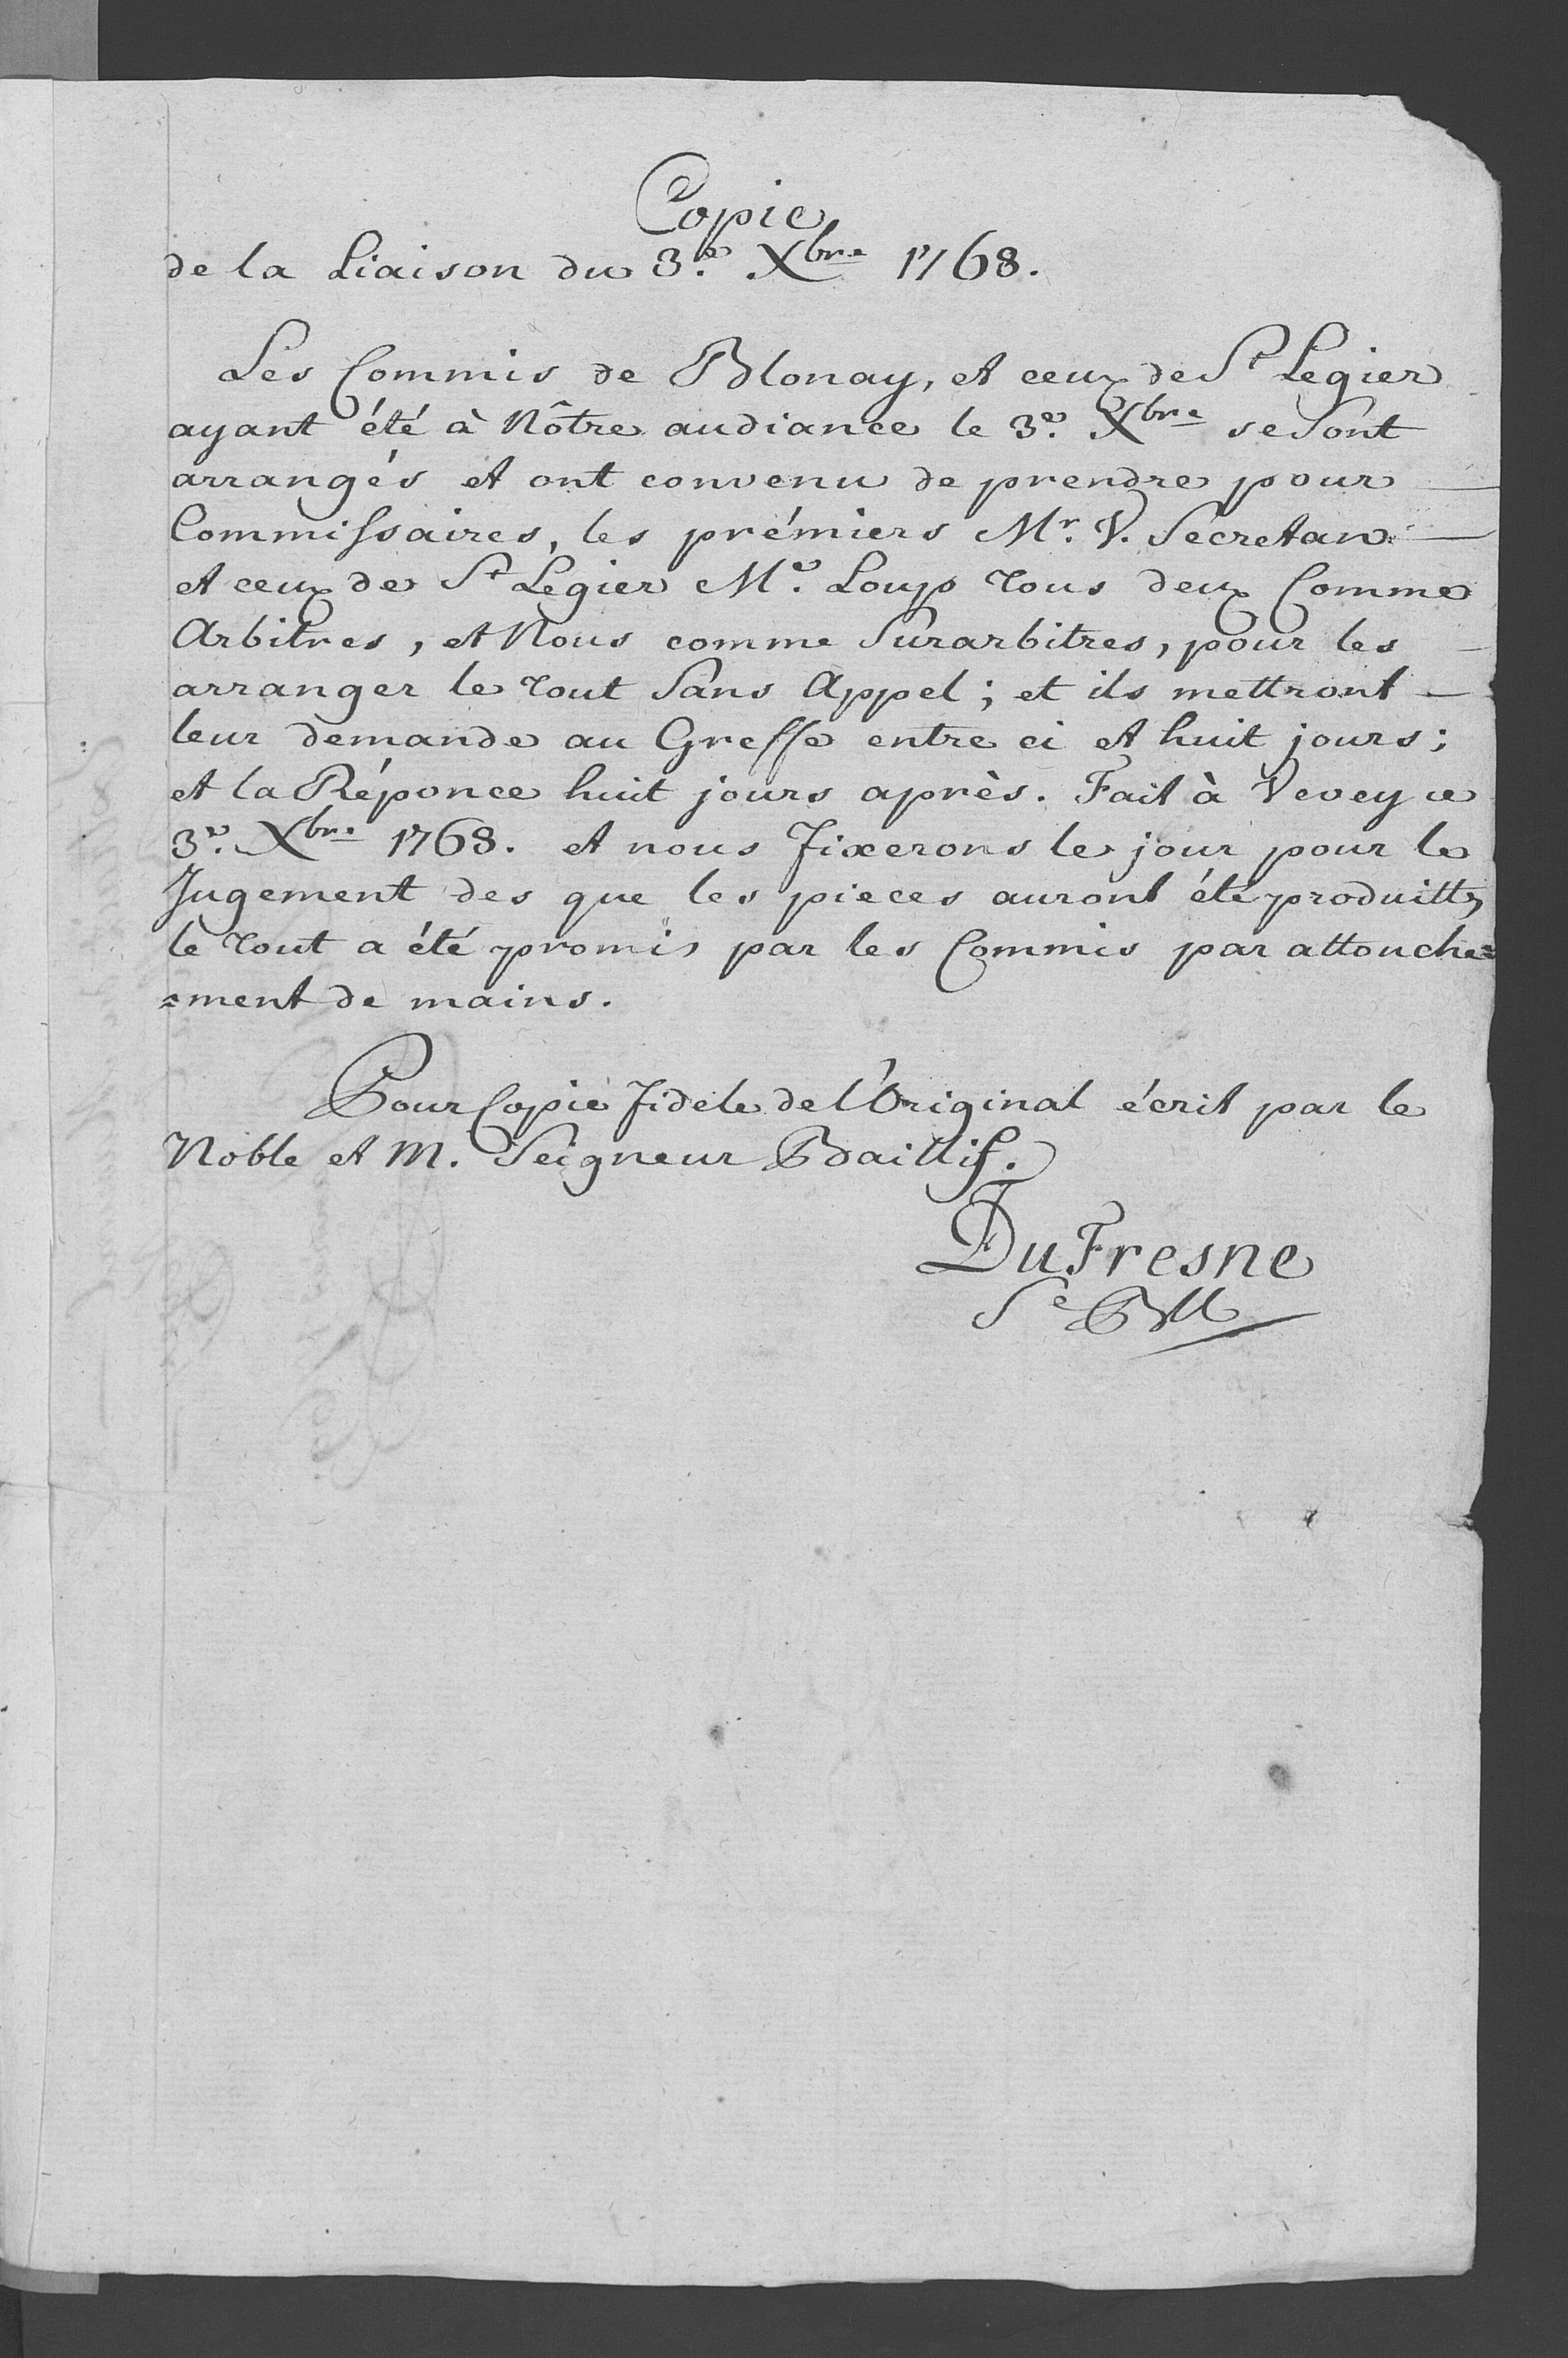 Copie
de la Liaison du 3.e Xbre 1768.
Les Commis de Blonay, et ceux de St Legier
ayant été à Nôtre audiance le 3.e Xbre se sont
arrangés et ont convenu de prendre pour
Commissaires, les prémiers Mr. V. Secretan
et ceux de St Legier Mr. Loup tous deux Comme
Arbitres, et Nous comme Surarbitres, pour les
arranger le tout Sans Appel; et ils mettront
leur demande au Greffe entre ci et huit jours;
et la Réponce huit jours après. Fait à Vevey ce
3.e Xbre 1768. et nous Fixerons le jour pour le
Jugement des que les pieces auront été produittes,
le tout a été promis par les Commis par attouche=
=ment de mains.
Pour Copie Fidele de l'Original écrit par le
Noble et M. Seigneur Baillif.
DuFresne